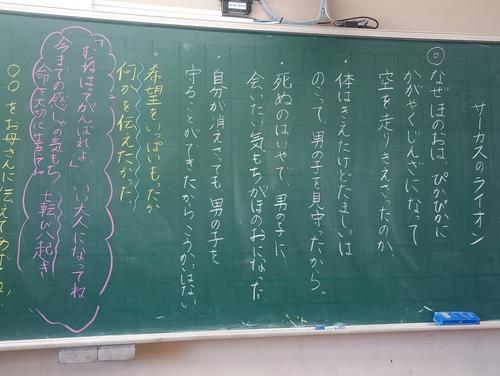 サーカスのライオン
◎なぜほのおは、ぴかぴかに
かがやくじんざになって
空を走りきえさったのか。
・体はきえたけどたましいは
のこって、男の子を見守ったから。
・死ぬのはいやで、男の子に
会いたい気もちがほのおになった。
・自分が消えさっても男の子を
守ることができたからこうかいはない
・希望をいっぱいもったか
何かを伝えたかった
「むねはってがんばれよ」いい大人になってね
今までの感しゃの気もち 七転び八起き
命を大切に生きてね
○○をお母さんに伝えてあげ